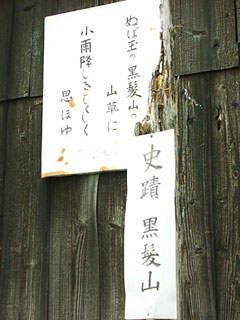 ぬば玉の黒髪山の
山草に
小雨降しきしくしく
思ほゆ
史蹟 黒髪山